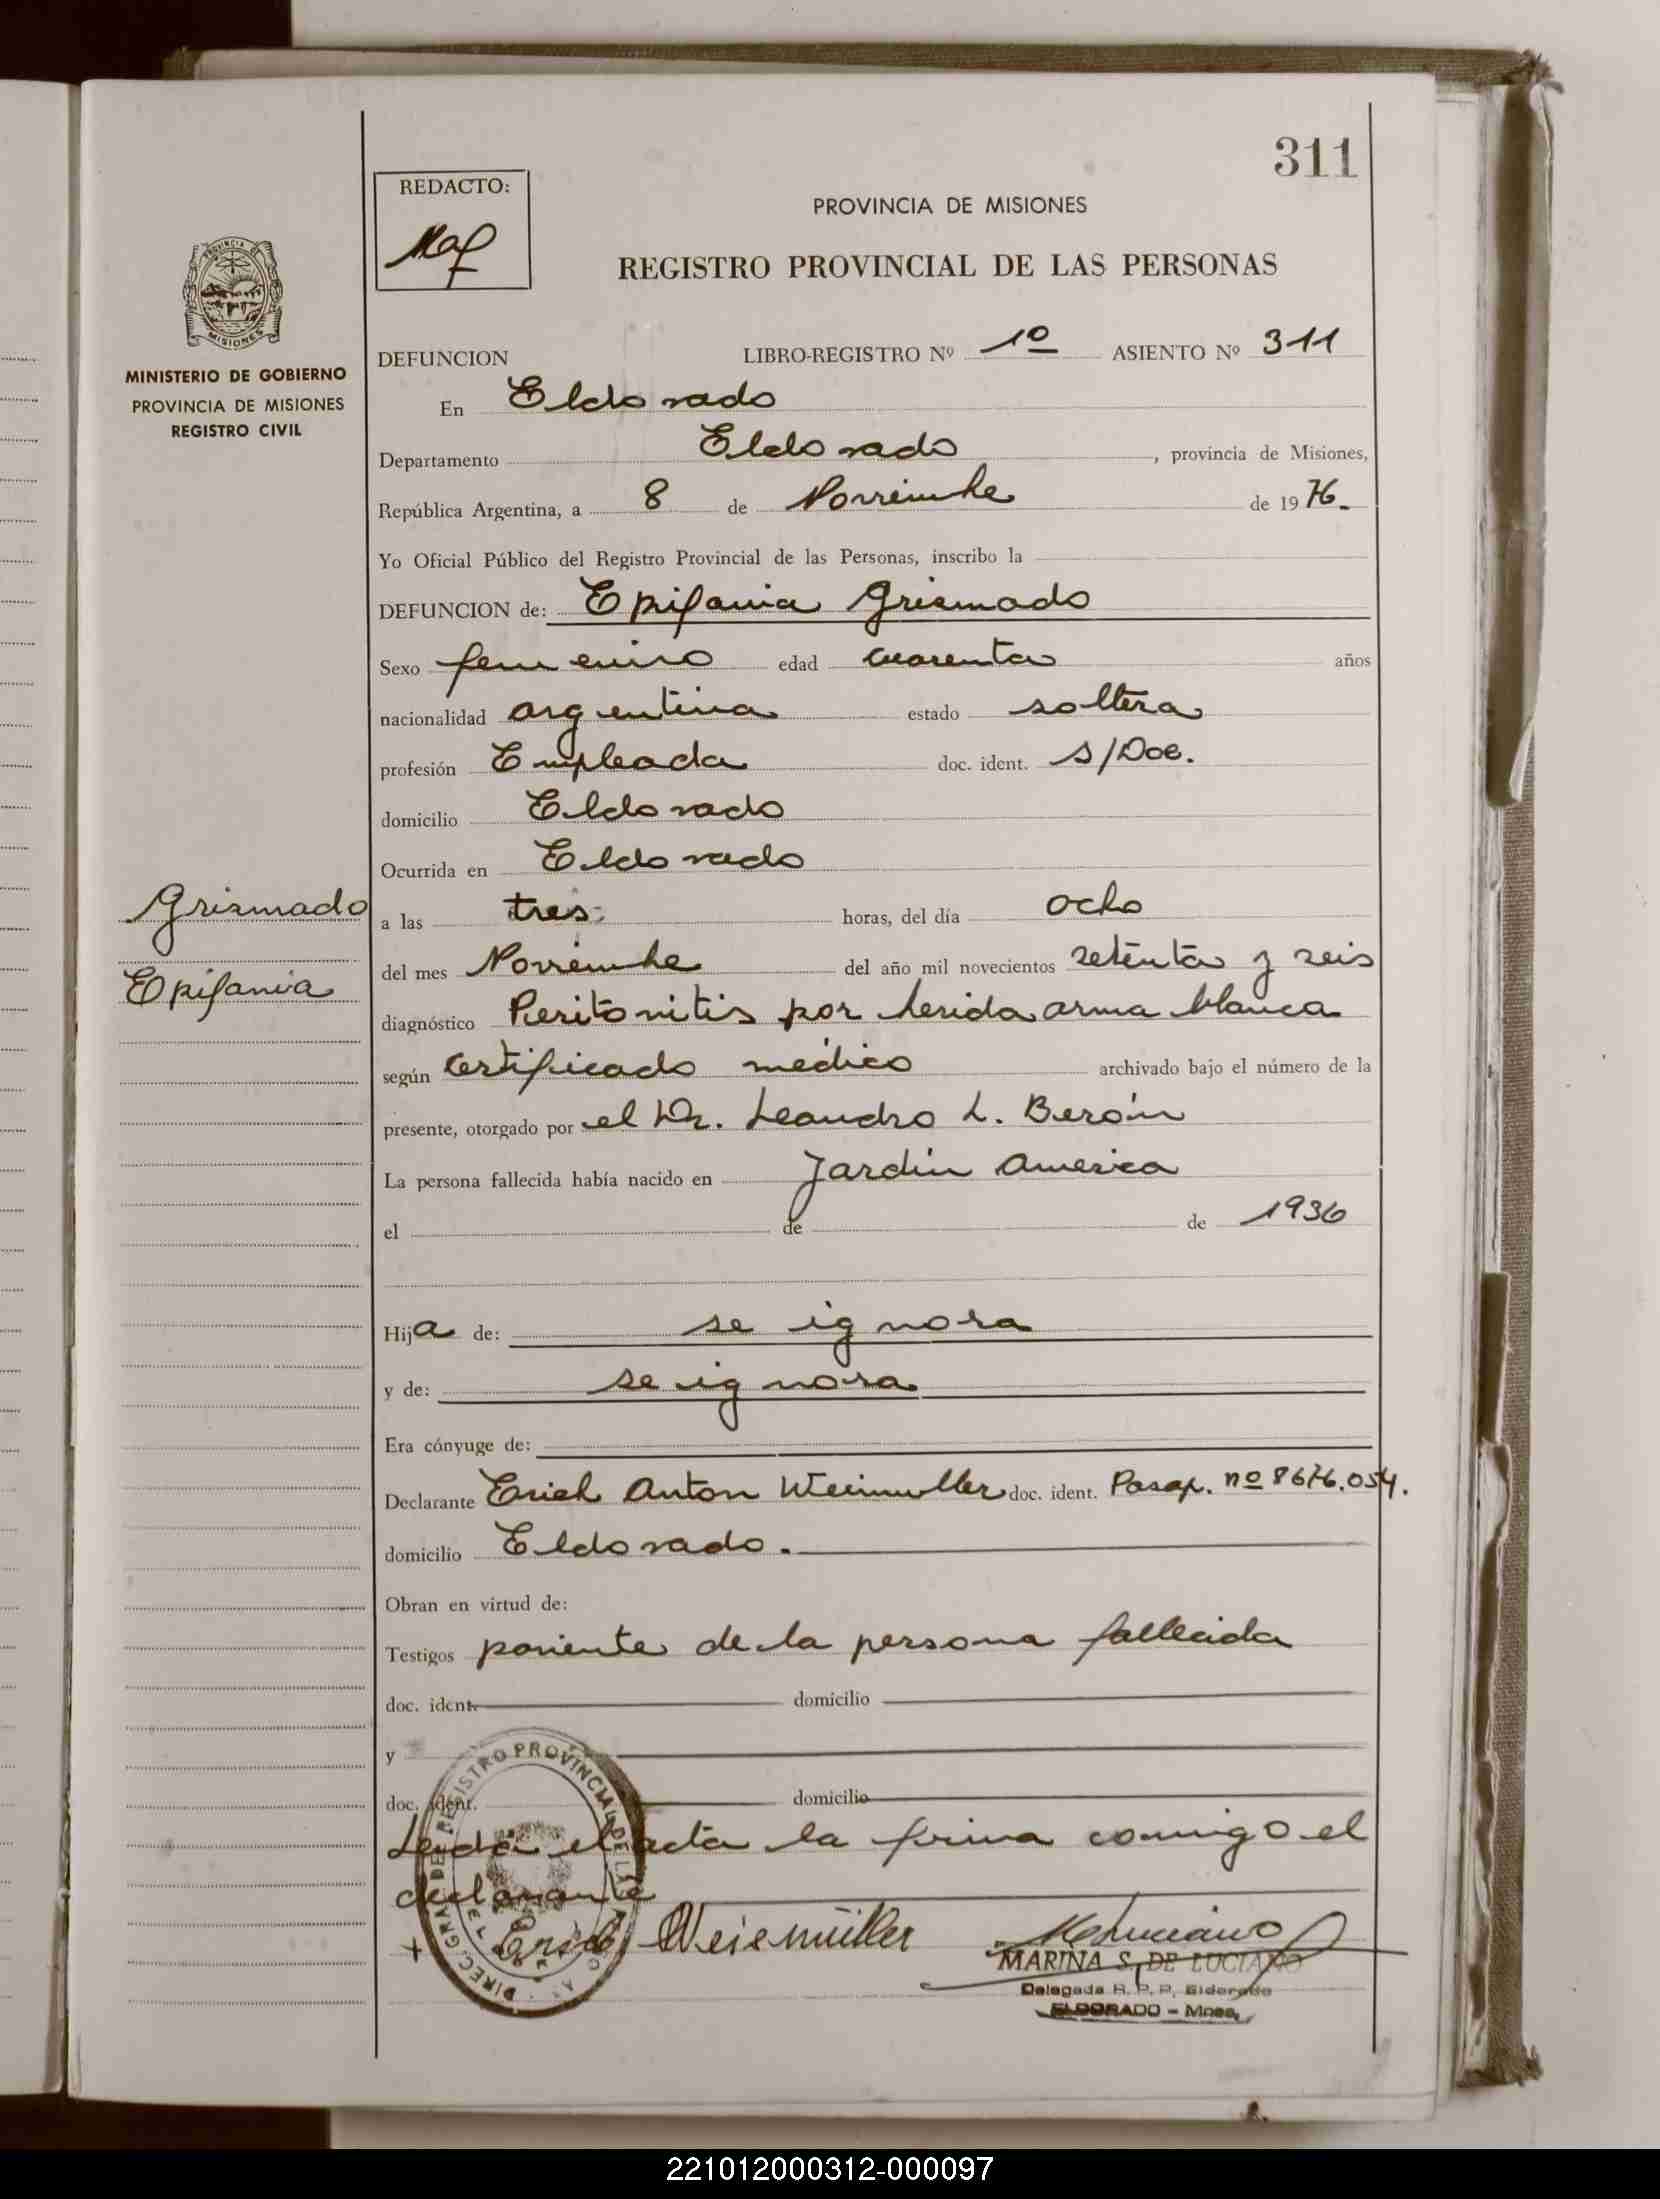 311
REDACTO:
PROVINCIA DE MISIONES
REGISTRO PROVINCIAL DE LAS PERSONAS
PROVINCIA DE
MISIONES
MINISTERIO DE GOBIERNO
PROVINCIA DE MISIONES
REGISTRO CIVIL
DEFUNCION LIBRO-REGISTRO Nº 1º ASIENTO Nº 311
En Eldorado
Departamento Eldorado, provincia de Misiones,
República Argentina, a 8 de Noviembre de 1976.
Yo Oficial Público del Registro Provincial de las Personas, inscribo la
DEFUNCION de: Epifania Grismado
Sexo femenino edad cuarenta años
nacionalidad argentina estado soltera
profesión Empleada doc. ident. s/Doc.
domicilio Eldorado
Ocurrida en Eldorado
Grismado
Epifania
a las tres horas, del día ocho
del mes Noviembre del año mil novecientos setenta y seis
diagnóstico Peritonitis por herida arma blanca
según certificado médico archivado bajo el número de la
presente, otorgado por el Dr. Leandro L. Berón
La persona fallecida había nacido en Jardin America
el de de 1936
Hija de: se ignora
y de: se ignora
Era cónyuge de:
Declarante Erich Anton Weimuller doc. ident. Pasap. nº 8676.054.
domicilio Eldorado.
Obran en virtud de:
Testigos pariente de la persona fallecida
doc. ident. domicilio
y
doc. ident. domicilio
Leida el acta la firma conmigo el
declarante
Erich Weismüller
MARINA S. DE LUCIANO
Delegada R. P. P. Eldorado
ELDORADO - Mnes.
REGISTRO PROVINCIAL DE LAS
221012000312-000097